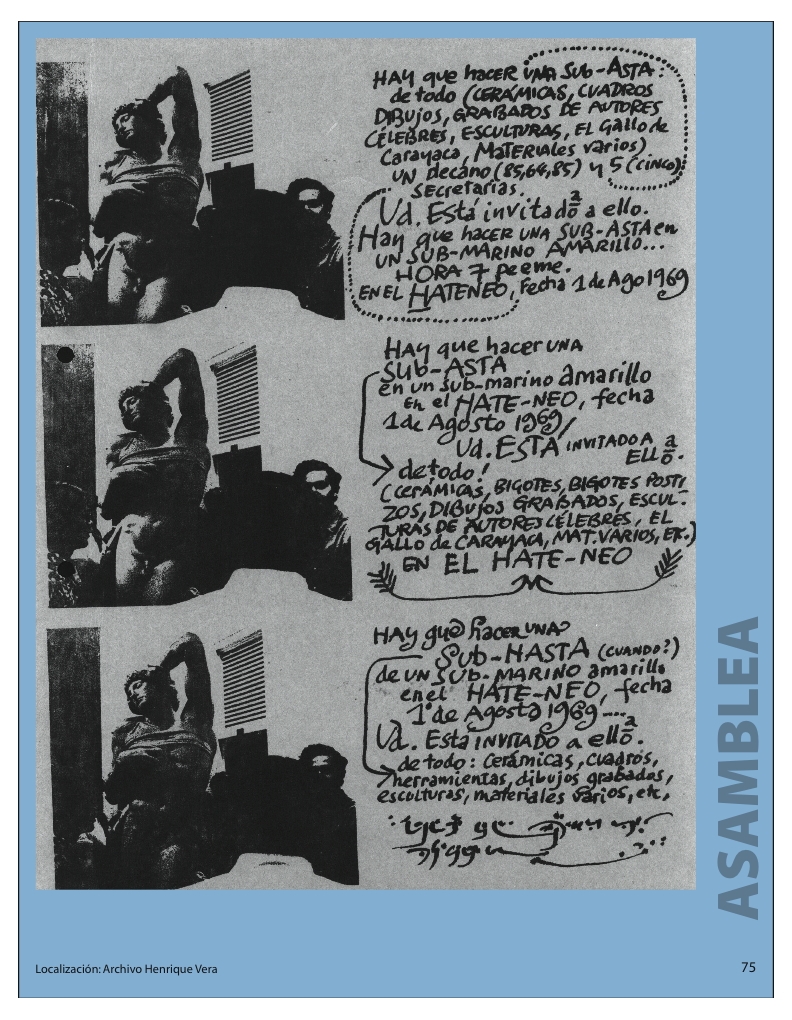 HAY que hacer UNA SUB-ASTA:
de todo (CERÁMICAS, CUADROS
DIBUJOS, GRABADOS DE AUTORES
CÉLEBRES, ESCULTURAS, EL Gallo de
Carayaca, MATERIALES varios)
UN decano (85,64,85) y 5 (CINCO)
Secretarias.
Ud. Está invitadōª a ello.
Hay que hacer UNA SUB-ASTA en
UN SUB-MARINO AMARILLO...
HORA 7 peeme.
EN EL HATENEO, Fecha 1 de Ago 1969
HAY que hacer UNA
SUB-ASTA
en un Sub-marino amarillo
En el HATE-NEO, fecha
1 de Agosto 1969/
Ud. ESTÁ INVITADO A
ELLOª.
de todo!
(CERÁMICAS, BIGOTES, BIGOTES POSTI
ZOS, DIBUJOS GRABADOS, ESCUL-
TURAS DE AUTORES CÉLEBRES, EL
GALLO de CARAYACA, MAT. VARIOS, ETC.)
EN EL HATE-NEO
HAY que hacer UNA
SUB-HASTA (CUANDO?)
de UN SUB-MARINO amarillo
en el HATE-NEO, fecha
1° de Agosto 1969....
Ud. Está INVITADO a elloª.
de todo: Cerámicas, cuadros,
herramientas, dibujos grabados,
esculturas, materiales varios, etc,
ASAMBLEA
Localización: Archivo Henrique Vera
75